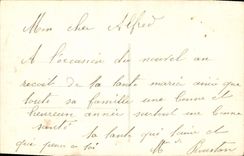 Mon cher Alfred
A l'occasion du nouvel an
recoit de ta tante marie ainsi que
toute sa famille une bonne et
heureuse année surtout une bonne
santé ta tante qui t'aime et
que pense a toi